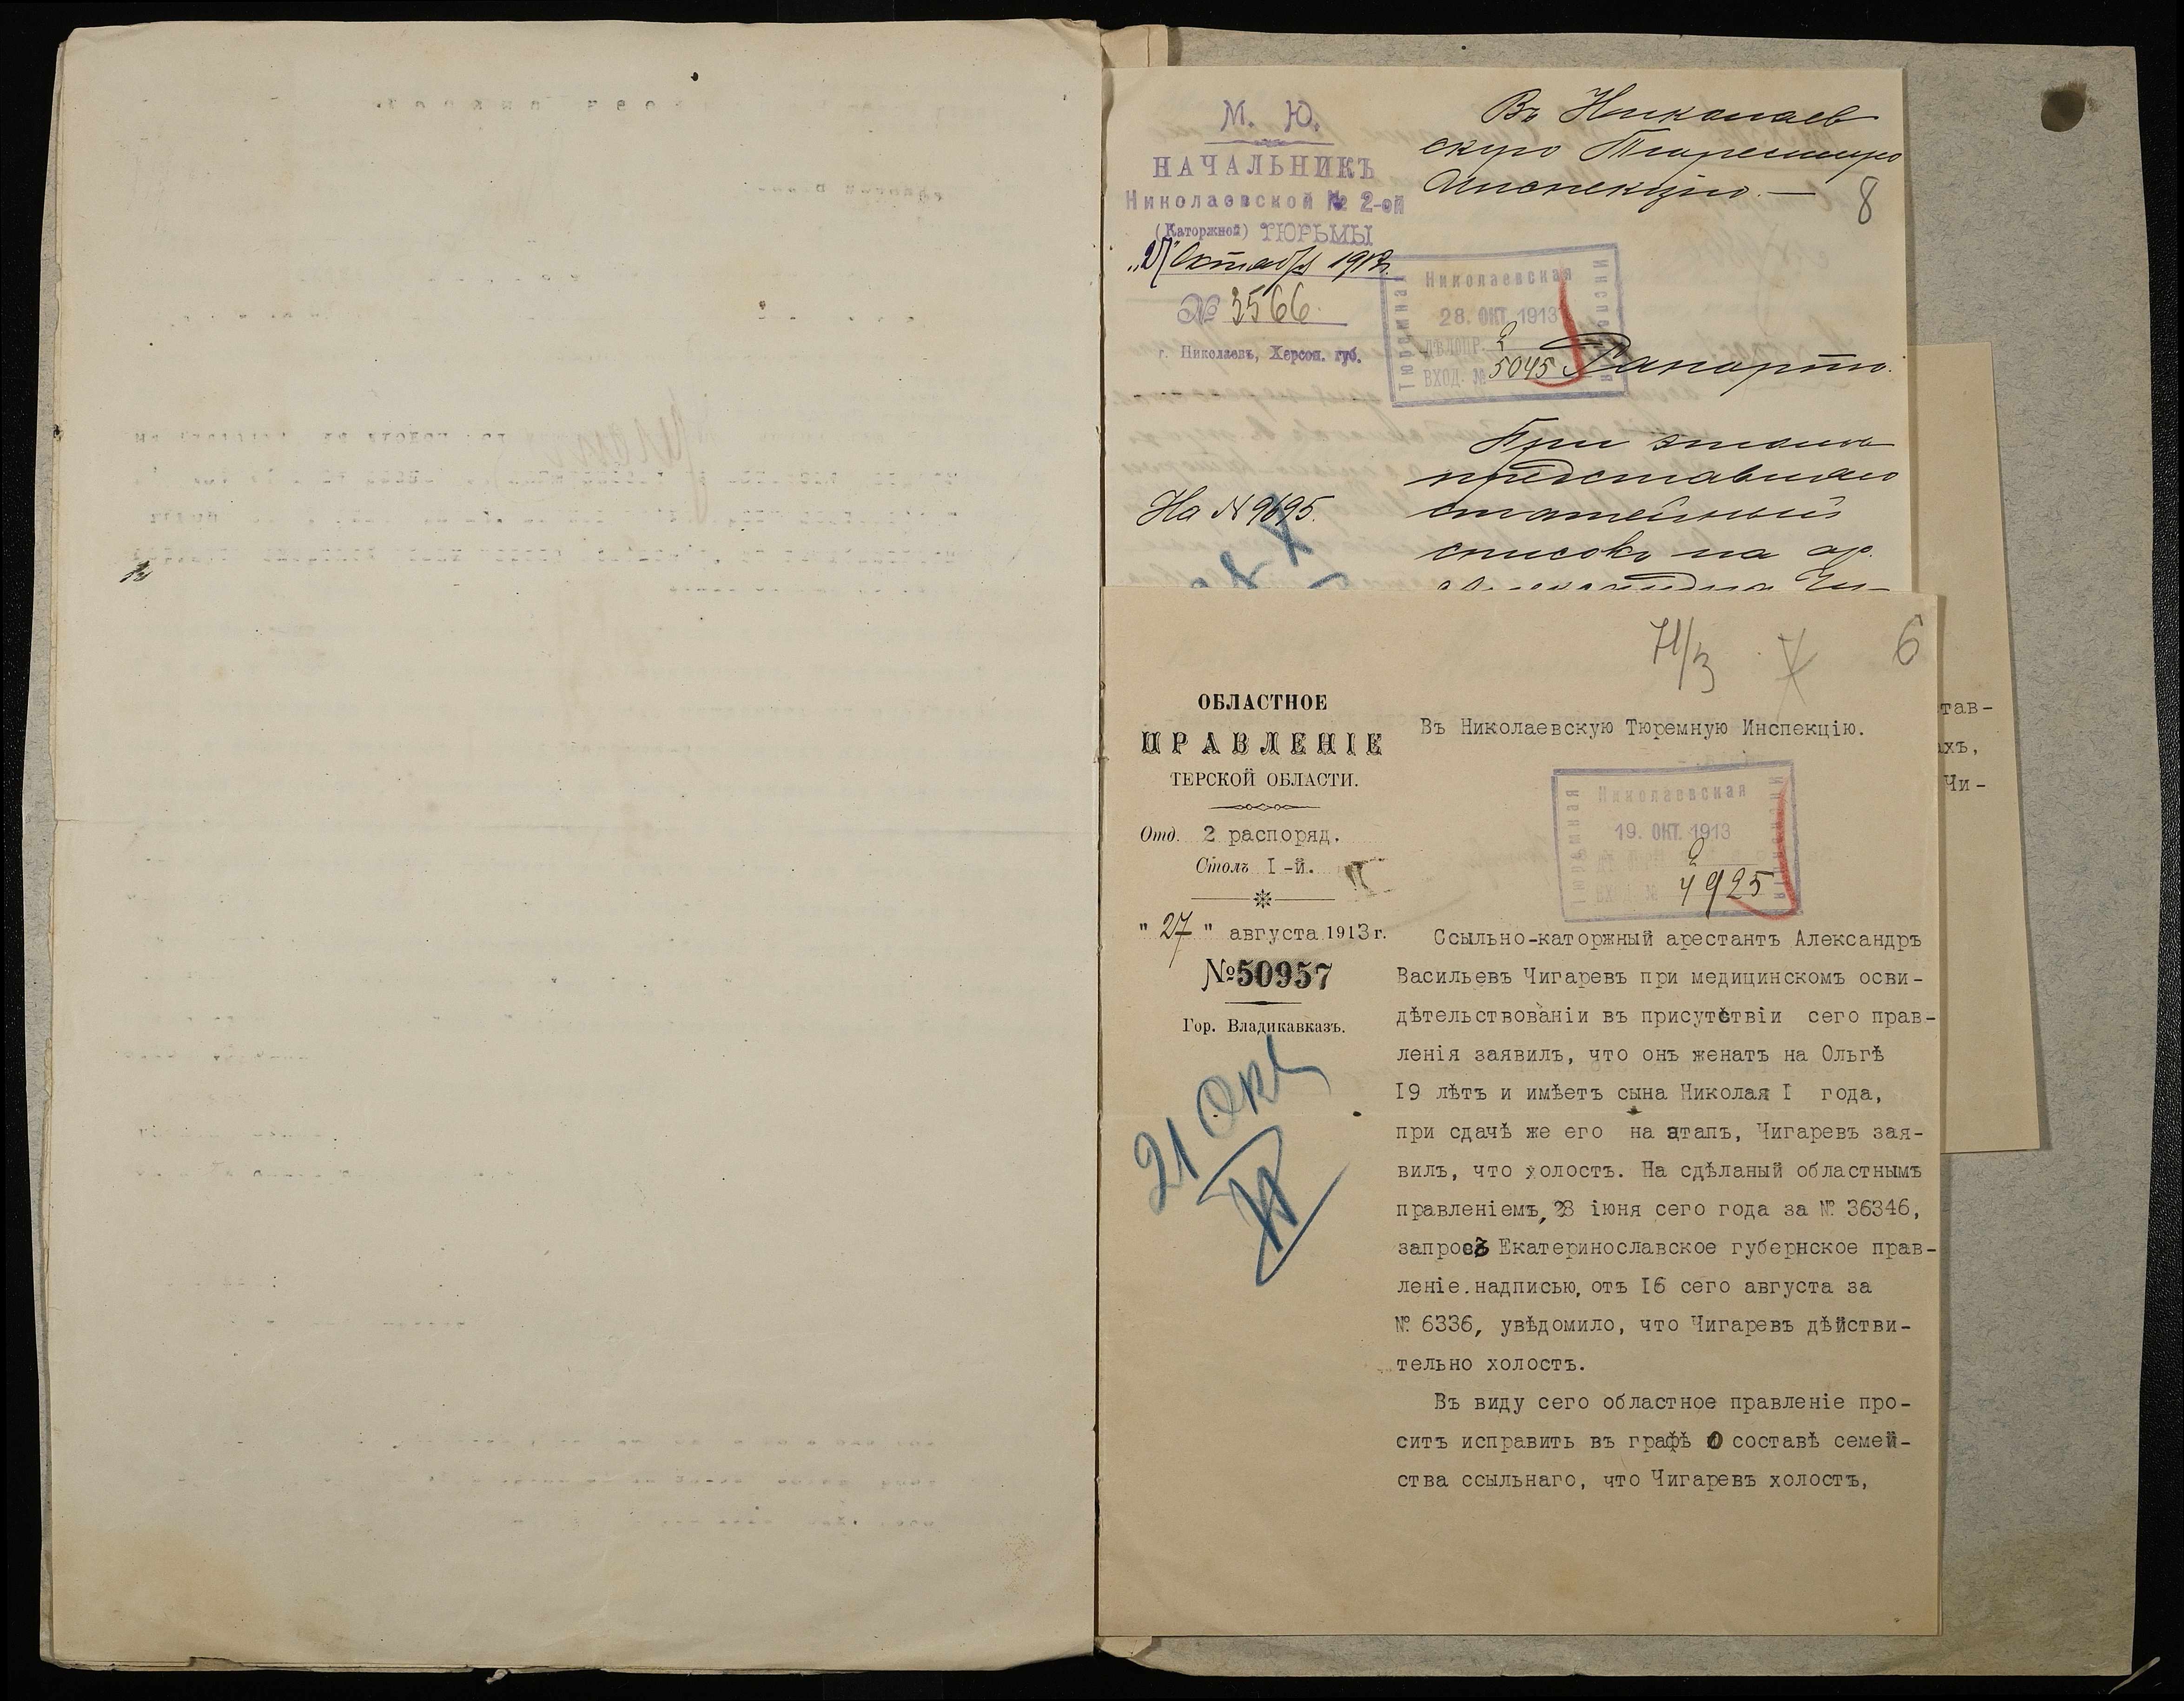 М. Ю.
НАЧАЛЬНИКЪ
Николаевской № 2-ой
(Каторжной) ТЮРЬМЫ
„27" Октября 1913г.
№ 3566.
г. Николаевъ, Херсон. губ.
На № 9695.
Въ Николаев
скую Тюремную
Инспекцію. —
8
Николаевская
Тюремная
Инспекція
28. ОКТ. 1913
ДѢЛОПР. 2
ВХОД. № 5045
Рапортъ.
При этомъ
представляю
статейный
списокъ на ар.
Александра Чи-
6
ОБЛАСТНОЕ
ПРАВЛЕНІЕ
ТЕРСКОЙ ОБЛАСТИ.
Отд. 2 распоряд.
Столъ I-й.
" 27 " августа 1913 г.
№ 50957
Гор. Владикавказъ.
21 Окт
Въ Николаевскую Тюремную Инспекцію.
Николаевская
Тюремная
Инспекція
19. ОКТ. 1913
2
ВХОД. № 4925
Ссыльно-каторжный арестантъ Александръ
Васильевъ Чигаревъ при медицинскомъ осви-
дѣтельствованіи въ присутствіи сего прав-
ленія заявилъ, что онъ женатъ на Ольгѣ
I9 лѣтъ и имѣетъ сына Николая I года,
при сдачѣ же его на этапъ, Чигаревъ зая-
вилъ, что холостъ. На сдѣланый областнымъ
правленіемъ, 28 іюня сего года за № 36346,
запросъ Екатеринославское губернское прав-
леніе.надписью, отъ I6 сего августа за
№ 6336, увѣдомило, что Чигаревъ дѣйстви-
тельно холостъ.
Въ виду сего областное правленіе про-
ситъ исправить въ графѣ о составѣ семей-
ства ссыльнаго, что Чигаревъ холостъ,
тав-
ахъ,
Чи-